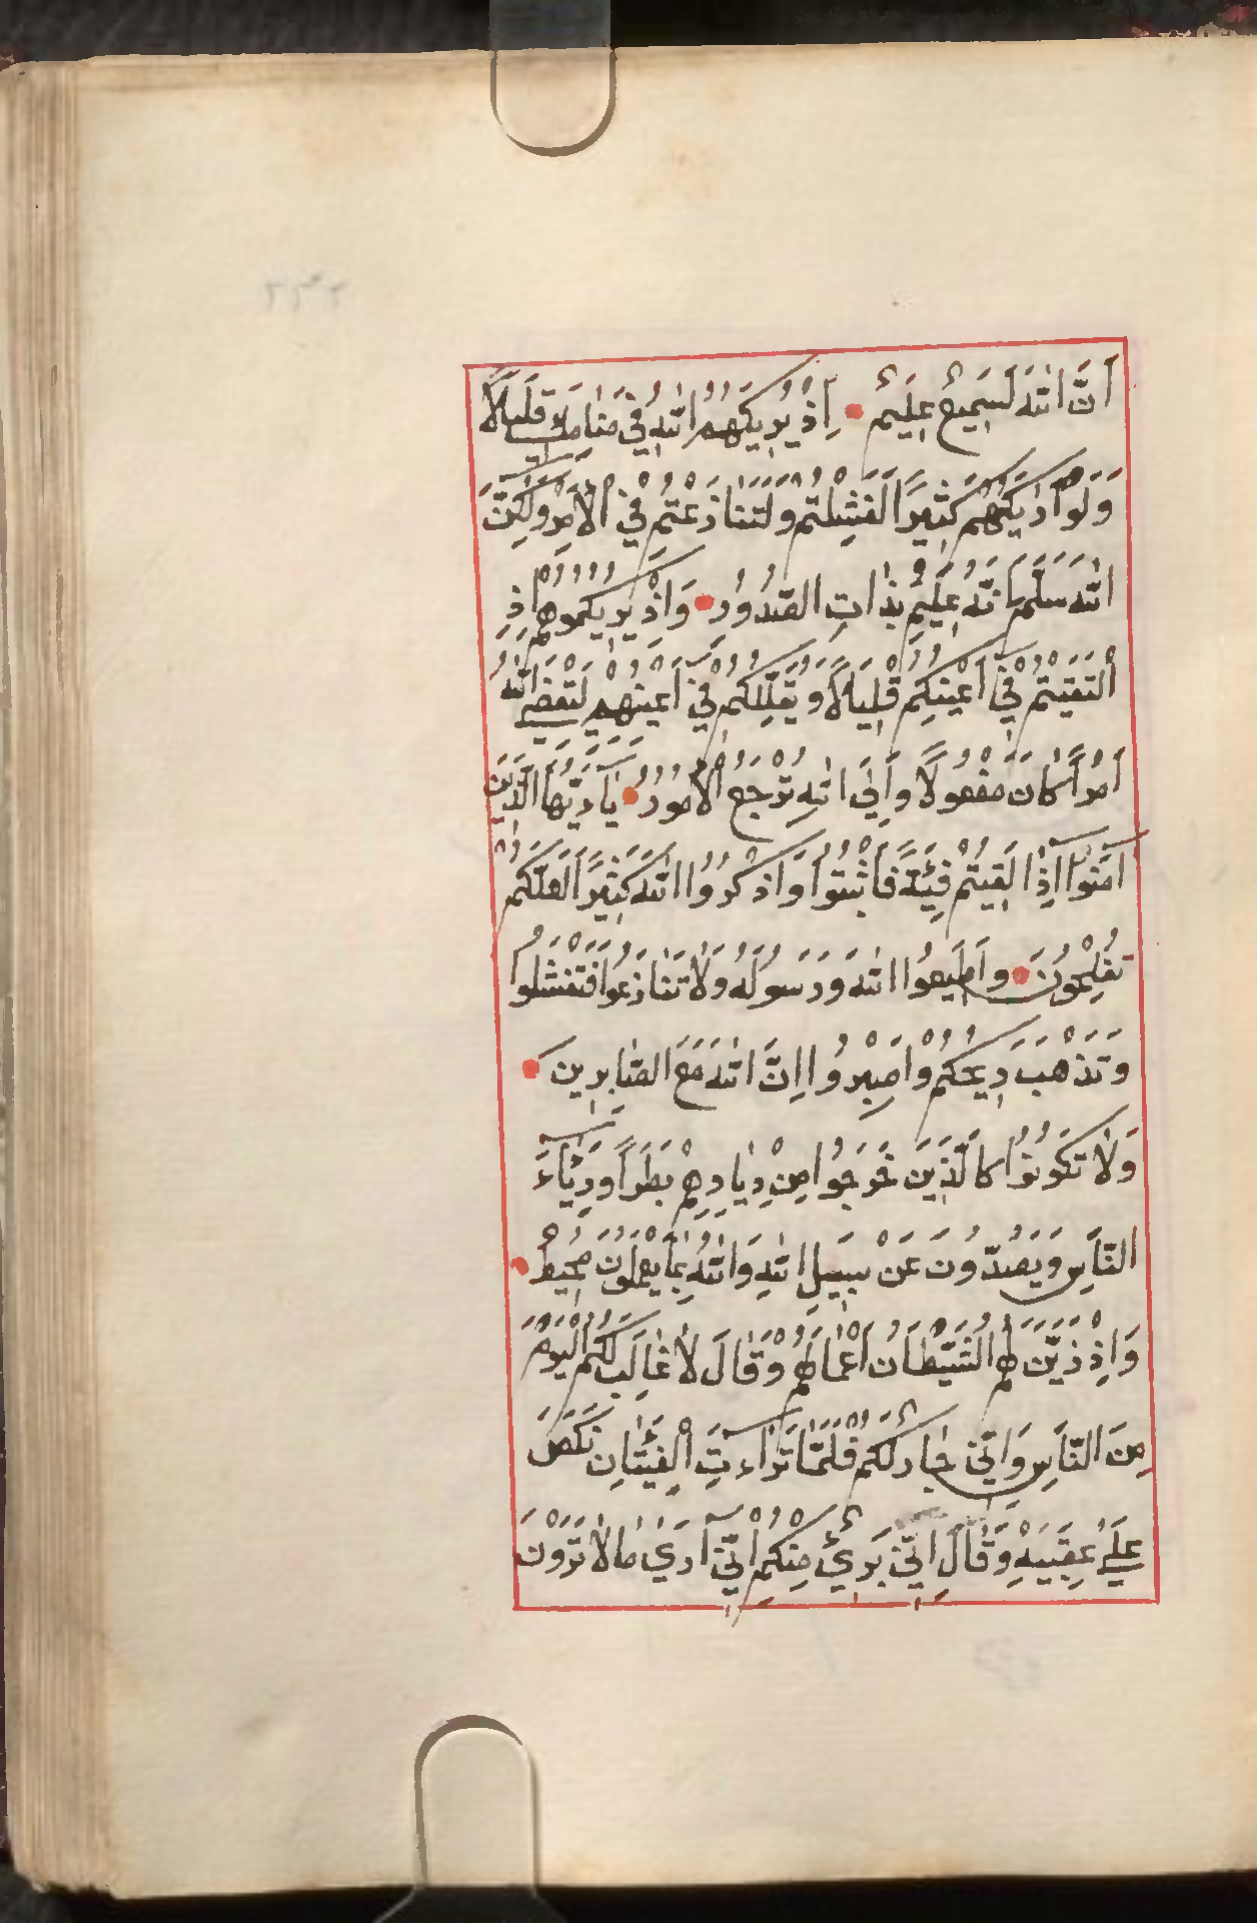 اَنَّ اللّٰهَ لَسَمِيعٌ عَلِيمٌ اِذْ يُرِيكَهُمُ اللّٰهُ فِي مَنَامِكَ قَلِيلًا
وَلَوْ اَرٰيكَهُمْ كَثِيرًا لَفَشِلْتُمْ وَلَتَنَازَعْتُمْ فِي الْاَمْرِ وَلٰكِنَّ
اللّٰهَ سَلَّمَ اِنَّهُ عَلِيمٌ بِذَاتِ الصُّدُورِ وَاِذْ يُرِيكُمُوهُمْ اِذِ
الْتَقَيْتُمْ فِي اَعْيُنِكُمْ قَلِيلًا وَيُقَلِّلُكُمْ فِي اَعْيُنِهِمْ لِيَقْضِيَ اللّٰهُ
اَمْرًا كَانَ مَفْعُولًا وَاِلَى اللّٰهِ تُرْجَعُ الْاُمُورُ يَا اَيُّهَا الَّذِينَ
آمَنُوا اِذَا لَقِيتُمْ فِئَةً فَاثْبُتُوا وَاذْكُرُوا اللّٰهَ كَثِيرًا لَعَلَّكُمْ
تُفْلِحُونَ وَاَطِيعُوا اللّٰهَ وَرَسُولَهُ وَلَا تَنَازَعُوا فَتَفْشَلُوا
وَتَذْهَبَ رِيحُكُمْ وَاصْبِرُوا اِنَّ اللّٰهَ مَعَ الصَّابِرِينَ
وَلَا تَكُونُوا كَالَّذِينَ خَرَجُوا مِنْ دِيَارِهِمْ بَطَرًا وَرِئَآءَ
النَّاسِ وَيَصُدُّونَ عَنْ سَبِيلِ اللّٰهِ وَاللّٰهُ بِمَا يَعْمَلُونَ مُحِيطٌ
وَاِذْ زَيَّنَ لَهُمُ الشَّيْطَانُ اَعْمَالَهُمْ وَقَالَ لَا غَالِبَ لَكُمُ الْيَوْمَ
مِنَ النَّاسِ وَاِنِّي جَارٌ لَكُمْ فَلَمَّا تَرَآءَتِ الْفِئَتَانِ نَكَصَ
عَلٰى عَقِبَيْهِ وَقَالَ اِنِّي بَرِيءٌ مِنْكُمْ اِنِّي اَرٰى مَا لَا تَرَوْنَ